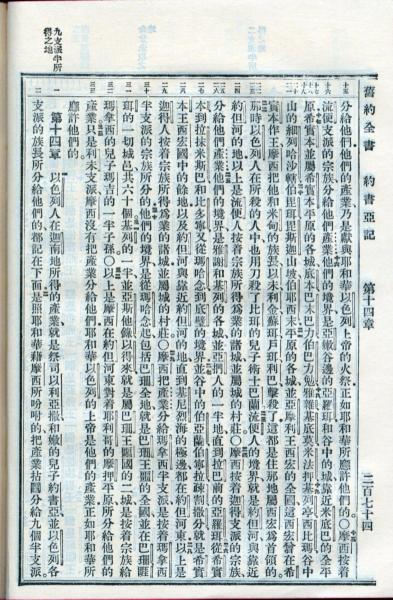 舊約全書 約書亞記 第十四章 二百七十四
分給他們他們的產業乃是獻與耶和華以色列上帝的火祭正如耶和華所應許他們的○摩西按着
流便支派的宗族分給產業他們的境界是亞嫩谷邊的亞羅珥和谷中的城靠近米底巴的全平
原希實本並屬希實本平原的各城底本巴末巴力伯巴力勉雅雜基底莫米法押基列亭西比瑪谷中
山的細列哈沙轄伯毘珥毘斯迦山坡伯耶西末平原的各城並亞摩利王西宏的全國這西宏曾在希
實本作王摩西把他和米甸的族長以未利金蘇珥戶珥利巴擊殺了這都是住那地屬西宏為首領的
那時以色列人在所殺的人中也用刀殺了比珥的兒子術士巴蘭流便人的境界就是約但河與靠近
約但河的地以上是流便人按着宗族所得為業的諸城並屬城的村莊○摩西按着迦得支派的宗族
分給他們產業他們的境界是雅謝和基列的各城並亞捫人的一半地直到拉巴前的亞羅珥從希實
本到拉抹米斯巴和比多寧又從瑪哈念到底璧的境界並谷中的伯亞蘭伯寧拉疎割撒分就是希實
本王西宏國中的餘地以及約但河與靠近約但河的地直到基尼烈海的極邊都在約但河東以上是
迦得人按着宗族所得為業的諸城並屬城的村莊○摩西把產業分給瑪拿西半支派是按着瑪拿西
半支派的宗族所分的他們的境界是從瑪哈念起包括巴珊全地就是巴珊王噩的全國並在巴珊睚
珥的一切城邑共六十個基列的一半並亞斯他錄以得來就是屬巴珊王噩國的二城是按着宗族給
瑪拿西的兒子瑪吉的一半子孫○以上是摩西在約但河東對着耶利哥的摩押平原所分給他們的
產業只是利未支派摩西沒有把產業分給他們耶和華以色列的上帝是他們的產業正如耶和華所
應許他們的
第十四章 以色列人在迦南地所得的產業就是祭司以利亞撒和嫩的兒子約書亞並以色列各
支派的族長所分給他們的都記在下面是照耶和華藉摩西所吩咐的把產業拈鬮分給九個半支派
九支派半所得之地